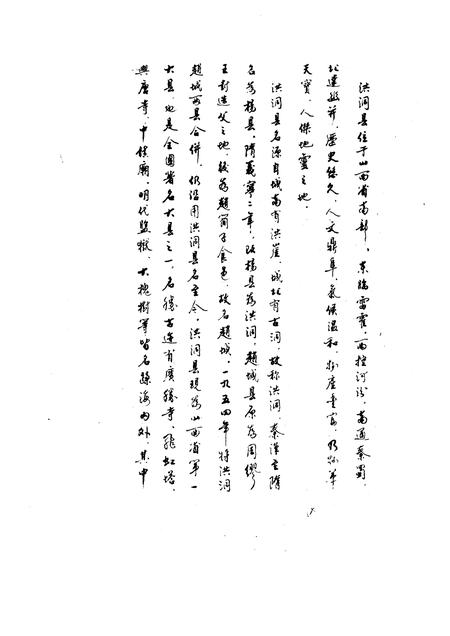 洪洞县位于山西省南部，东临雷霍，西控河汾，南通秦蜀，
北达幽并，历史悠久，人文鼎阜，气候温和，物产丰富，仍物华
天宝，人傑地靈之地。
洪洞县名源自城南有洪崖，城北有古洞，故称洪洞，秦漢至隋
名为楊县，隋義寧二年，改楊县为洪洞，趙城县原为周缪
王封造父之地，後为趙简子食邑，故名趙城，一九五四年将洪洞
趙城两县合併，仍沿用洪洞县名至今，洪洞县現为山西省第一
大县，也是全國著名大县之一，名勝古迹有廣勝寺、飛虹塔、
興唐寺、中镇廟、明代監獄、大槐樹等皆名蜚海内外，其中